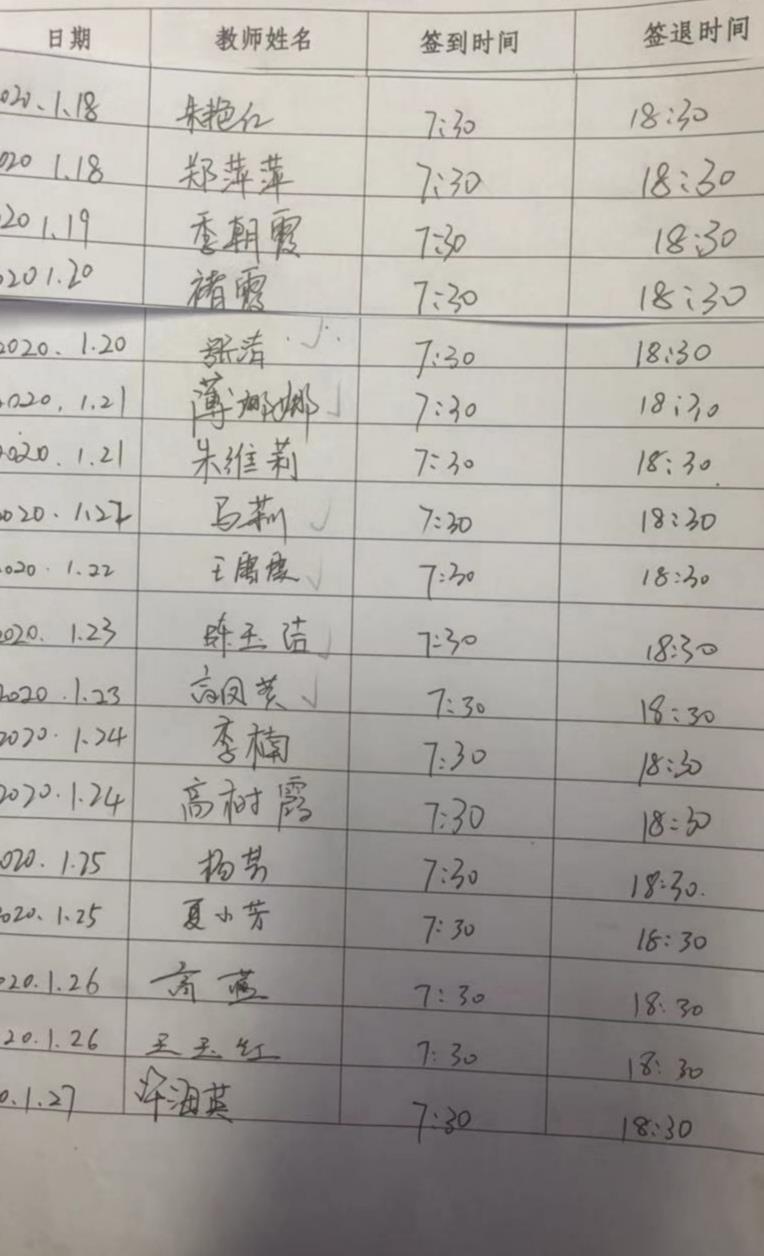 日期 教师姓名 签到时间 签退时间
020.1.18 朱艳红 7:30 18:30
020 1.18 郑萍萍 7:30 18:30
20 1.19 季朝霞 7:30 18:30
020 1.20 褚霞 7:30 18:30
2020.1.20 张清 7:30 18:30
2020.1.21 薄娜娜 7:30 18:30
2020.1.21 朱维莉 7:30 18:30
2020.1.22 马莉 7:30 18:30
2020.1.22 王 7:30 18:30
2020.1.23 陈玉洁 7:30 18:30
2020.1.23 高凤英 7:30 18:30
2020.1.24 李楠 7:30 18:30
2020.1.24 高树霞 7:30 18:30
020.1.25 杨芳 7:30 18:30
2020.1.25 夏小芳 7:30 18:30
020.1.26 高燕 7:30 18:30
20.1.26 王玉红 7:30 18:30
0.1.27 许海英 7:30 18:30